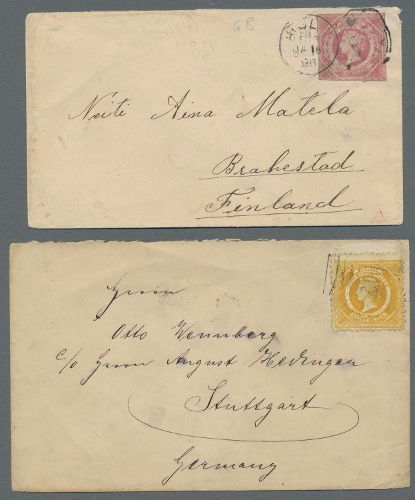 GB
HULL
JA 16
86
Neiti Aina Matela
Brahestad
Finland
Herrn
Otto Wennberg
c/o Herrn August Hedinger
Stuttgart
Germany